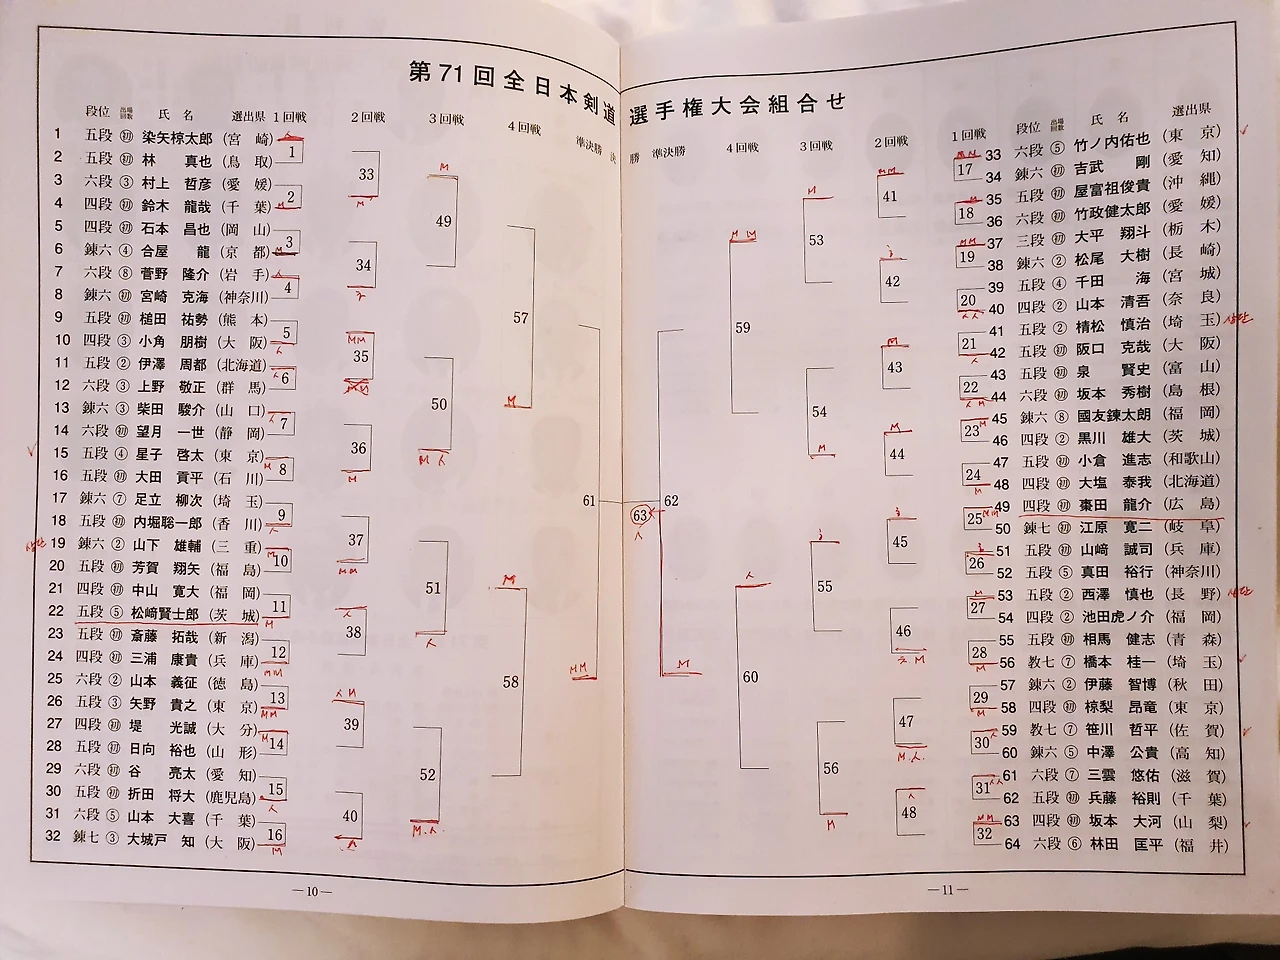 第71回全日本剣道選手権大会組合せ
段位 出場回数 氏名 選出県 1回戦 2回戦 3回戦 4回戦 準決勝 決
1 五段 初 染矢椋太郎 (宮崎)
2 五段 初 林 真也 (鳥取)
3 六段 ③ 村上 哲彦 (愛媛)
4 四段 初 鈴木 龍哉 (千葉)
5 四段 初 石本 昌也 (岡山)
6 錬六 ④ 合屋 龍 (京都)
7 六段 ⑧ 菅野 隆介 (岩手)
8 錬六 初 宮崎 克海 (神奈川)
9 五段 初 槌田 祐勢 (熊本)
10 四段 ③ 小角 朋樹 (大阪)
11 五段 ② 伊澤 周都 (北海道)
12 六段 ③ 上野 敬正 (群馬)
13 錬六 ③ 柴田 駿介 (山口)
14 六段 初 望月 一世 (静岡)
15 五段 ④ 星子 啓太 (東京)
16 五段 初 大田 貢平 (石川)
17 錬六 ⑦ 足立 柳次 (埼玉)
18 五段 初 内堀聡一郎 (香川)
19 錬六 ② 山下 雄輔 (三重)
20 五段 初 芳賀 翔矢 (福島)
21 四段 初 中山 寛大 (福岡)
22 五段 ⑤ 松﨑賢士郎 (茨城)
23 五段 初 斎藤 拓哉 (新潟)
24 四段 初 三浦 康貴 (兵庫)
25 六段 ② 山本 義征 (徳島)
26 五段 ③ 矢野 貴之 (東京)
27 四段 初 堤 光誠 (大分)
28 五段 初 日向 裕也 (山形)
29 六段 初 谷 亮太 (愛知)
30 五段 初 折田 将大 (鹿児島)
31 六段 ⑤ 山本 大喜 (千葉)
32 錬七 ③ 大城戸 知 (大阪)
1 2 3 4 5 6 7 8 9 10 11 12 13 14 15 16
33 34 35 36 37 38 39 40
49 50 51 52
57 58
61
63
―10―
勝 準決勝 4回戦 3回戦 2回戦 1回戦 段位 出場回数 氏名 選出県
33 六段 ⑤ 竹ノ内佑也 (東京)
34 錬六 初 吉武 剛 (愛知)
35 五段 初 屋富祖俊貴 (沖縄)
36 六段 初 竹政健太郎 (愛媛)
37 三段 初 大平 翔斗 (栃木)
38 錬六 ② 松尾 大樹 (長崎)
39 五段 ④ 千田 海 (宮城)
40 四段 ② 山本 清吾 (奈良)
41 五段 ② 棈松 慎治 (埼玉)
42 五段 初 阪口 克哉 (大阪)
43 五段 初 泉 賢史 (富山)
44 六段 初 坂本 秀樹 (島根)
45 錬六 ⑧ 國友錬太朗 (福岡)
46 四段 ② 黒川 雄大 (茨城)
47 五段 初 小倉 進志 (和歌山)
48 四段 初 大塩 泰我 (北海道)
49 四段 初 棗田 龍介 (広島)
50 錬七 初 江原 寛二 (岐阜)
51 五段 初 山﨑 誠司 (兵庫)
52 五段 ⑤ 真田 裕行 (神奈川)
53 五段 ② 西澤 慎也 (長野)
54 四段 ② 池田虎ノ介 (福岡)
55 五段 初 相馬 健志 (青森)
56 教七 ⑦ 橋本 桂一 (埼玉)
57 錬六 ② 伊藤 智博 (秋田)
58 四段 初 椋梨 昂竜 (東京)
59 教七 ⑦ 笹川 哲平 (佐賀)
60 錬六 ⑤ 中澤 公貴 (高知)
61 六段 ⑦ 三雲 悠佑 (滋賀)
62 五段 初 兵藤 裕則 (千葉)
63 四段 初 坂本 大河 (山梨)
64 六段 ⑥ 林田 匡平 (福井)
17 18 19 20 21 22 23 24 25 26 27 28 29 30 31 32
41 42 43 44 45 46 47 48
53 54 55 56
59 60
62
―11―